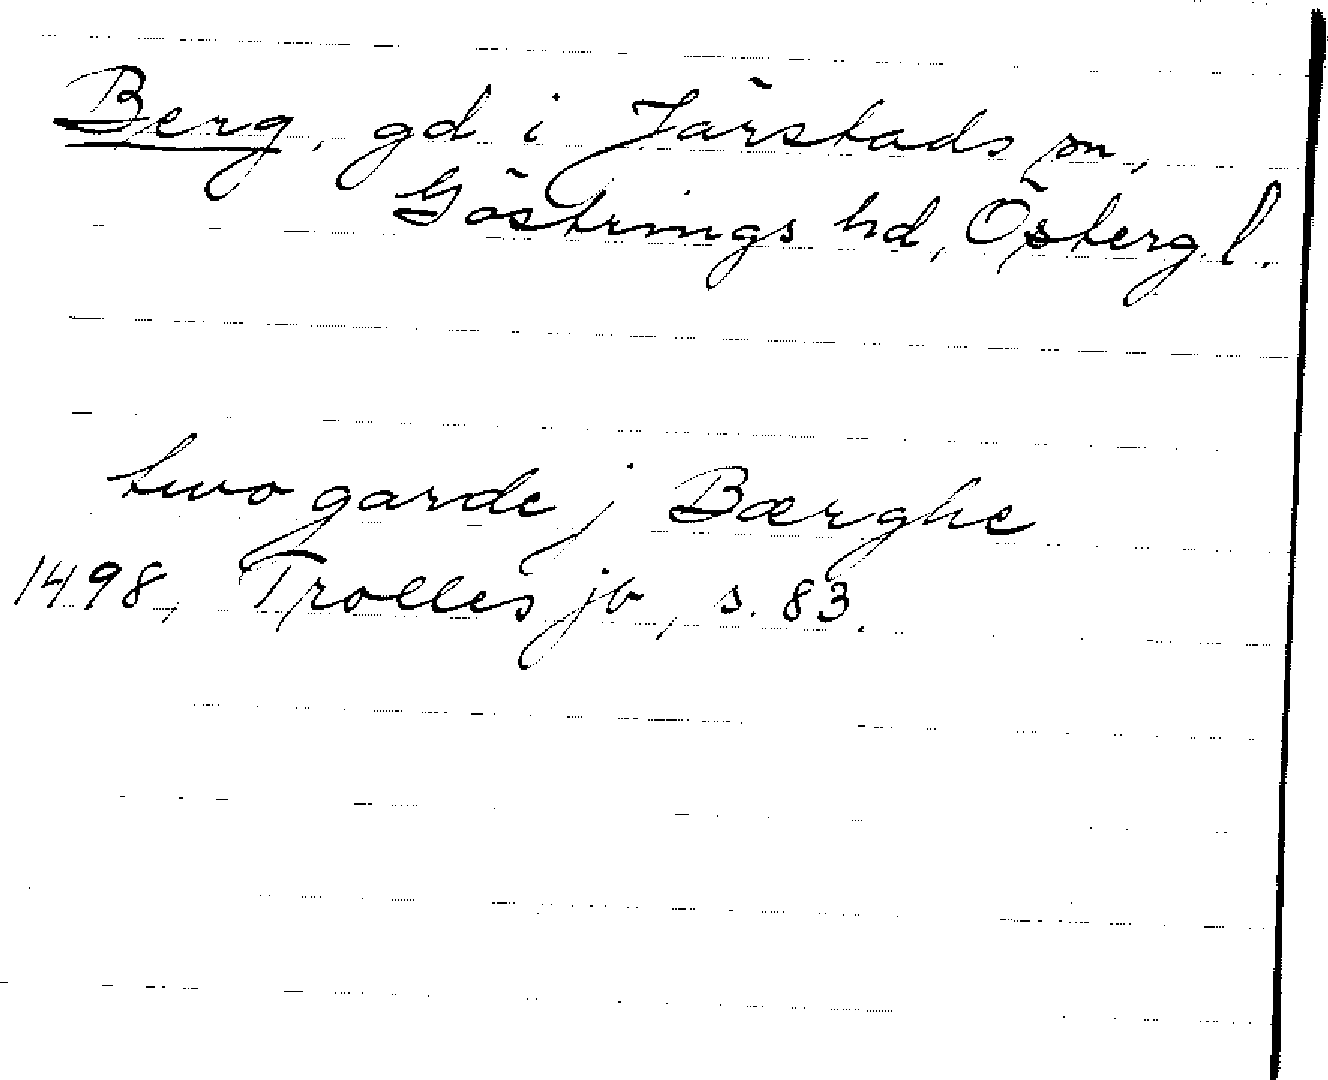 Berg, gd i Järstads sn,
Göstrings hd, Österg. l.
two garde j Bærghe
1498, Trolles jb, s. 83.